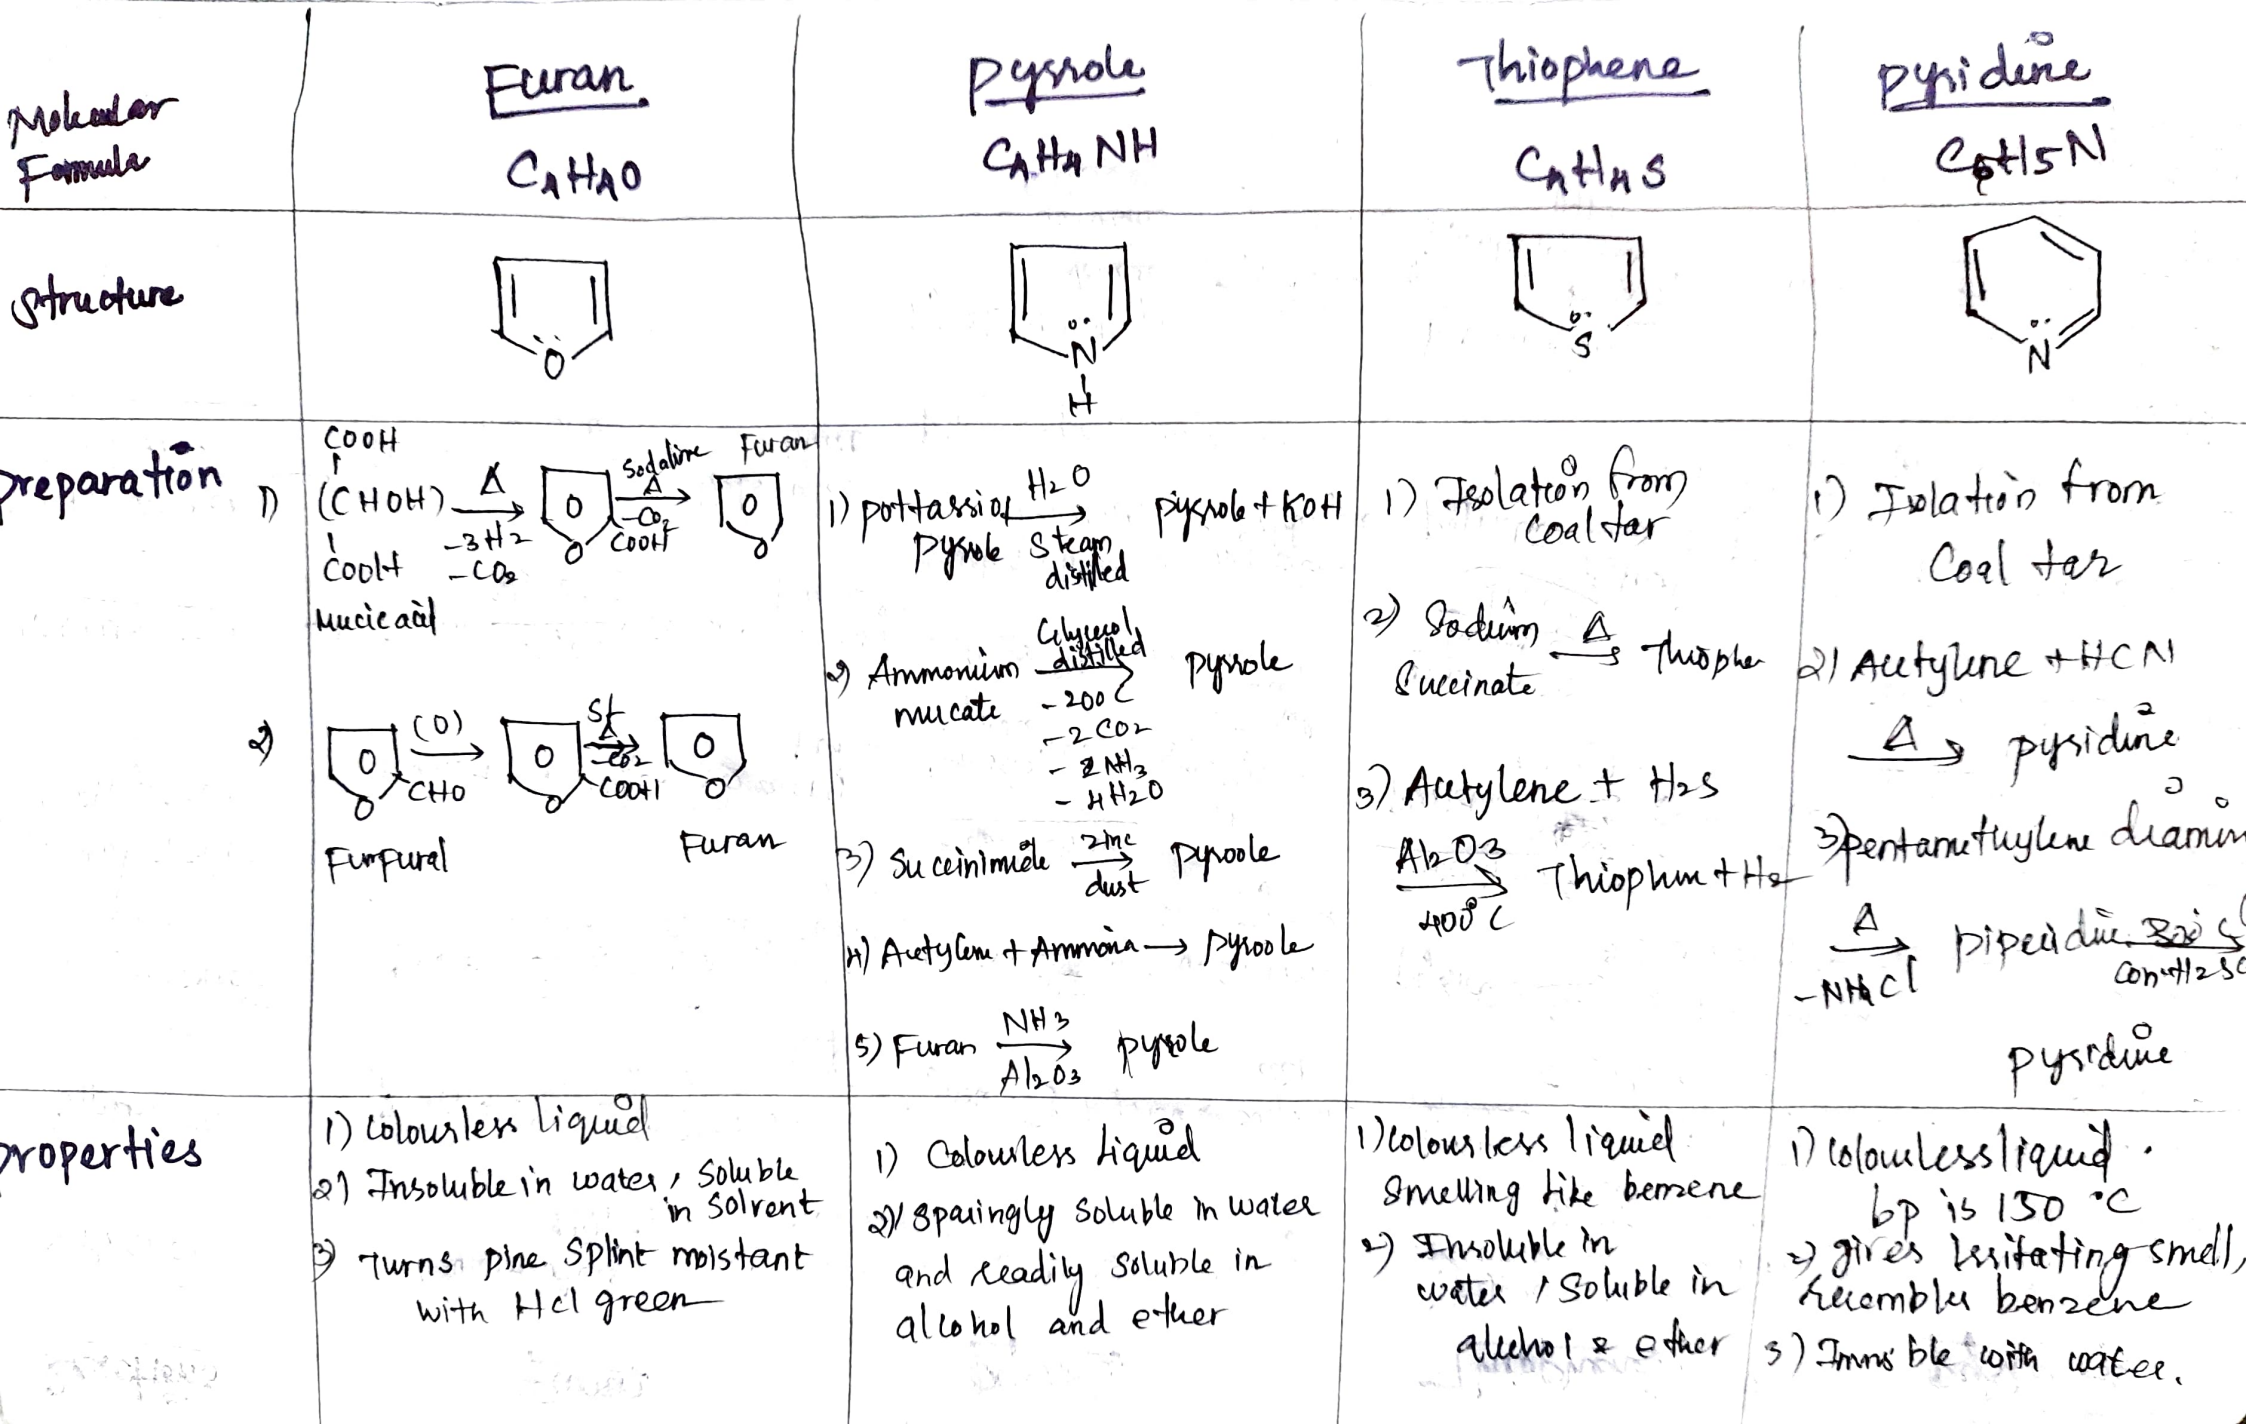 Furan
Pyrrole
Thiophene
Pyridine
Molecular
Formula
C4H4O
C4H4NH
C4H4S
C5H5N
Structure
O
N
H
S
N
Preparation
1)
COOH
(CHOH)
COOH
Mucic acid
Δ
-3H2
-CO2
O
O
COOH
Sodalime
Δ
-CO2
Furan
O
O
2)
O
O
CHO
Furfural
(O)
O
O
COOH
St
Δ
-CO2
O
O
Furan
1) Pottassiof H2O Pyrrole + KOH
Pyrrole Steam
distilled
2) Ammonium Glycerol Pyrrole
mucate distilled
-200 C
-2CO2
-2NH3
-4H2O
3) Succinimide zinc Pyroole
dust
4) Acetylene + Ammonia → Pyroole
5) Furan NH3 Pyrrole
Al2O3
1) Isolation from
Coal tar
2) Sodium Δ Thiophe
Succinate
3) Acetylene + H2S
Al2O3 Thiophene + H2
400°C
1) Isolation from
Coal tar
2) Acetylene + HCN
Δ Pyridine
3) Pentamethylene diamin
Δ Piperidine
-NH4Cl con. H2SO
Pyridine
Properties
1) Colourless liquid
2) Insoluble in water, soluble
in solvent
3) Turns pine splint moistant
with Hcl green
1) Colourless liquid
2) Sparingly soluble in water
and readily soluble in
alcohol and ether
1) Colourless liquid
Smelling like benzene
2) Insoluble in
water, soluble in
alcohol & ether
1) Colourless liquid.
bp is 150 °C
2) gives irritating smell,
resembles benzene
3) Immsible with water.